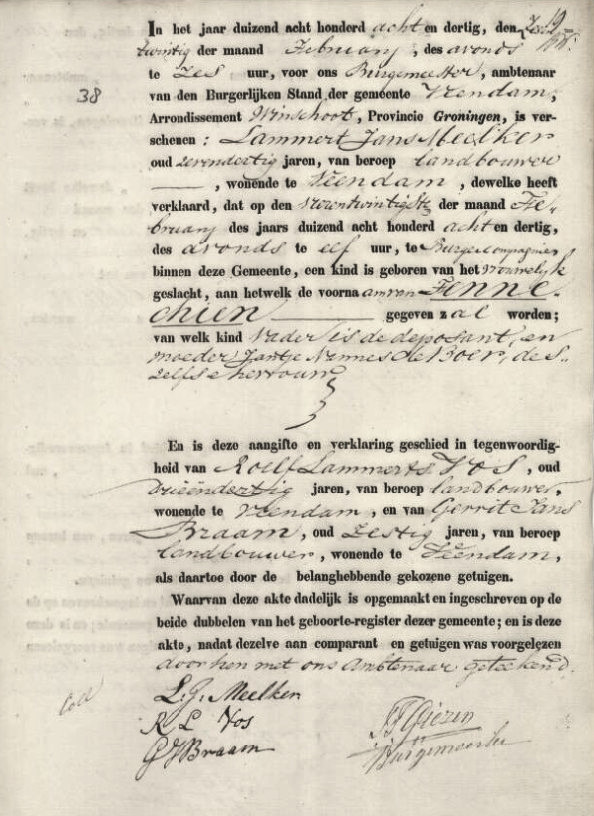 In het jaar duizend acht honderd acht en dertig, den Zes
19
twintig der maand February, des avonds
te Zes uur, voor ons Burgemeester, ambtenaar
38
van den Burgerlijken Stand der gemeente Veendam,
Arrondissement Winschoot, Provincie Groningen, is ver-
schenen: Lammert Jans Meelker
oud zevendertig jaren, van beroep landbouwer
, wonende te Veendam, dewelke heeft
verklaard, dat op den der maand Fe-
bruary des jaars duizend acht honderd acht en dertig,
des avonds te elf uur, te Burgercompagnie
binnen deze Gemeente, een kind is geboren van het vrouwelijk
geslacht, aan hetwelk de voorna am van Fenne-
chien gegeven zal worden;
van welk kind Vader is de deposant, en
moeder Jantje Nannes de Boer, de s.
zelfs ehevrouw
En is deze aangifte en verklaring geschied in tegenwoordig-
heid van Roelf Lammerts Vos, oud
drieëndertig jaren, van beroep landbouwer,
wonende te Veendam, en van Gerrit Jans
Braam, oud Zestig jaren, van beroep
landbouwer, wonende te Veendam,
als daartoe door de belanghebbende gekozene getuigen.
Waarvan deze akte dadelijk is opgemaakt en ingeschreven op de
beide dubbelen van het geboorte-register dezer gemeente; en is deze
akte, nadat dezelve aan comparant en getuigen was voorgelezen
door hen met ons Ambtenaar geteekend.
L. J. Meelker
R L Vos
G J Braam
Giezen
Burgemeester